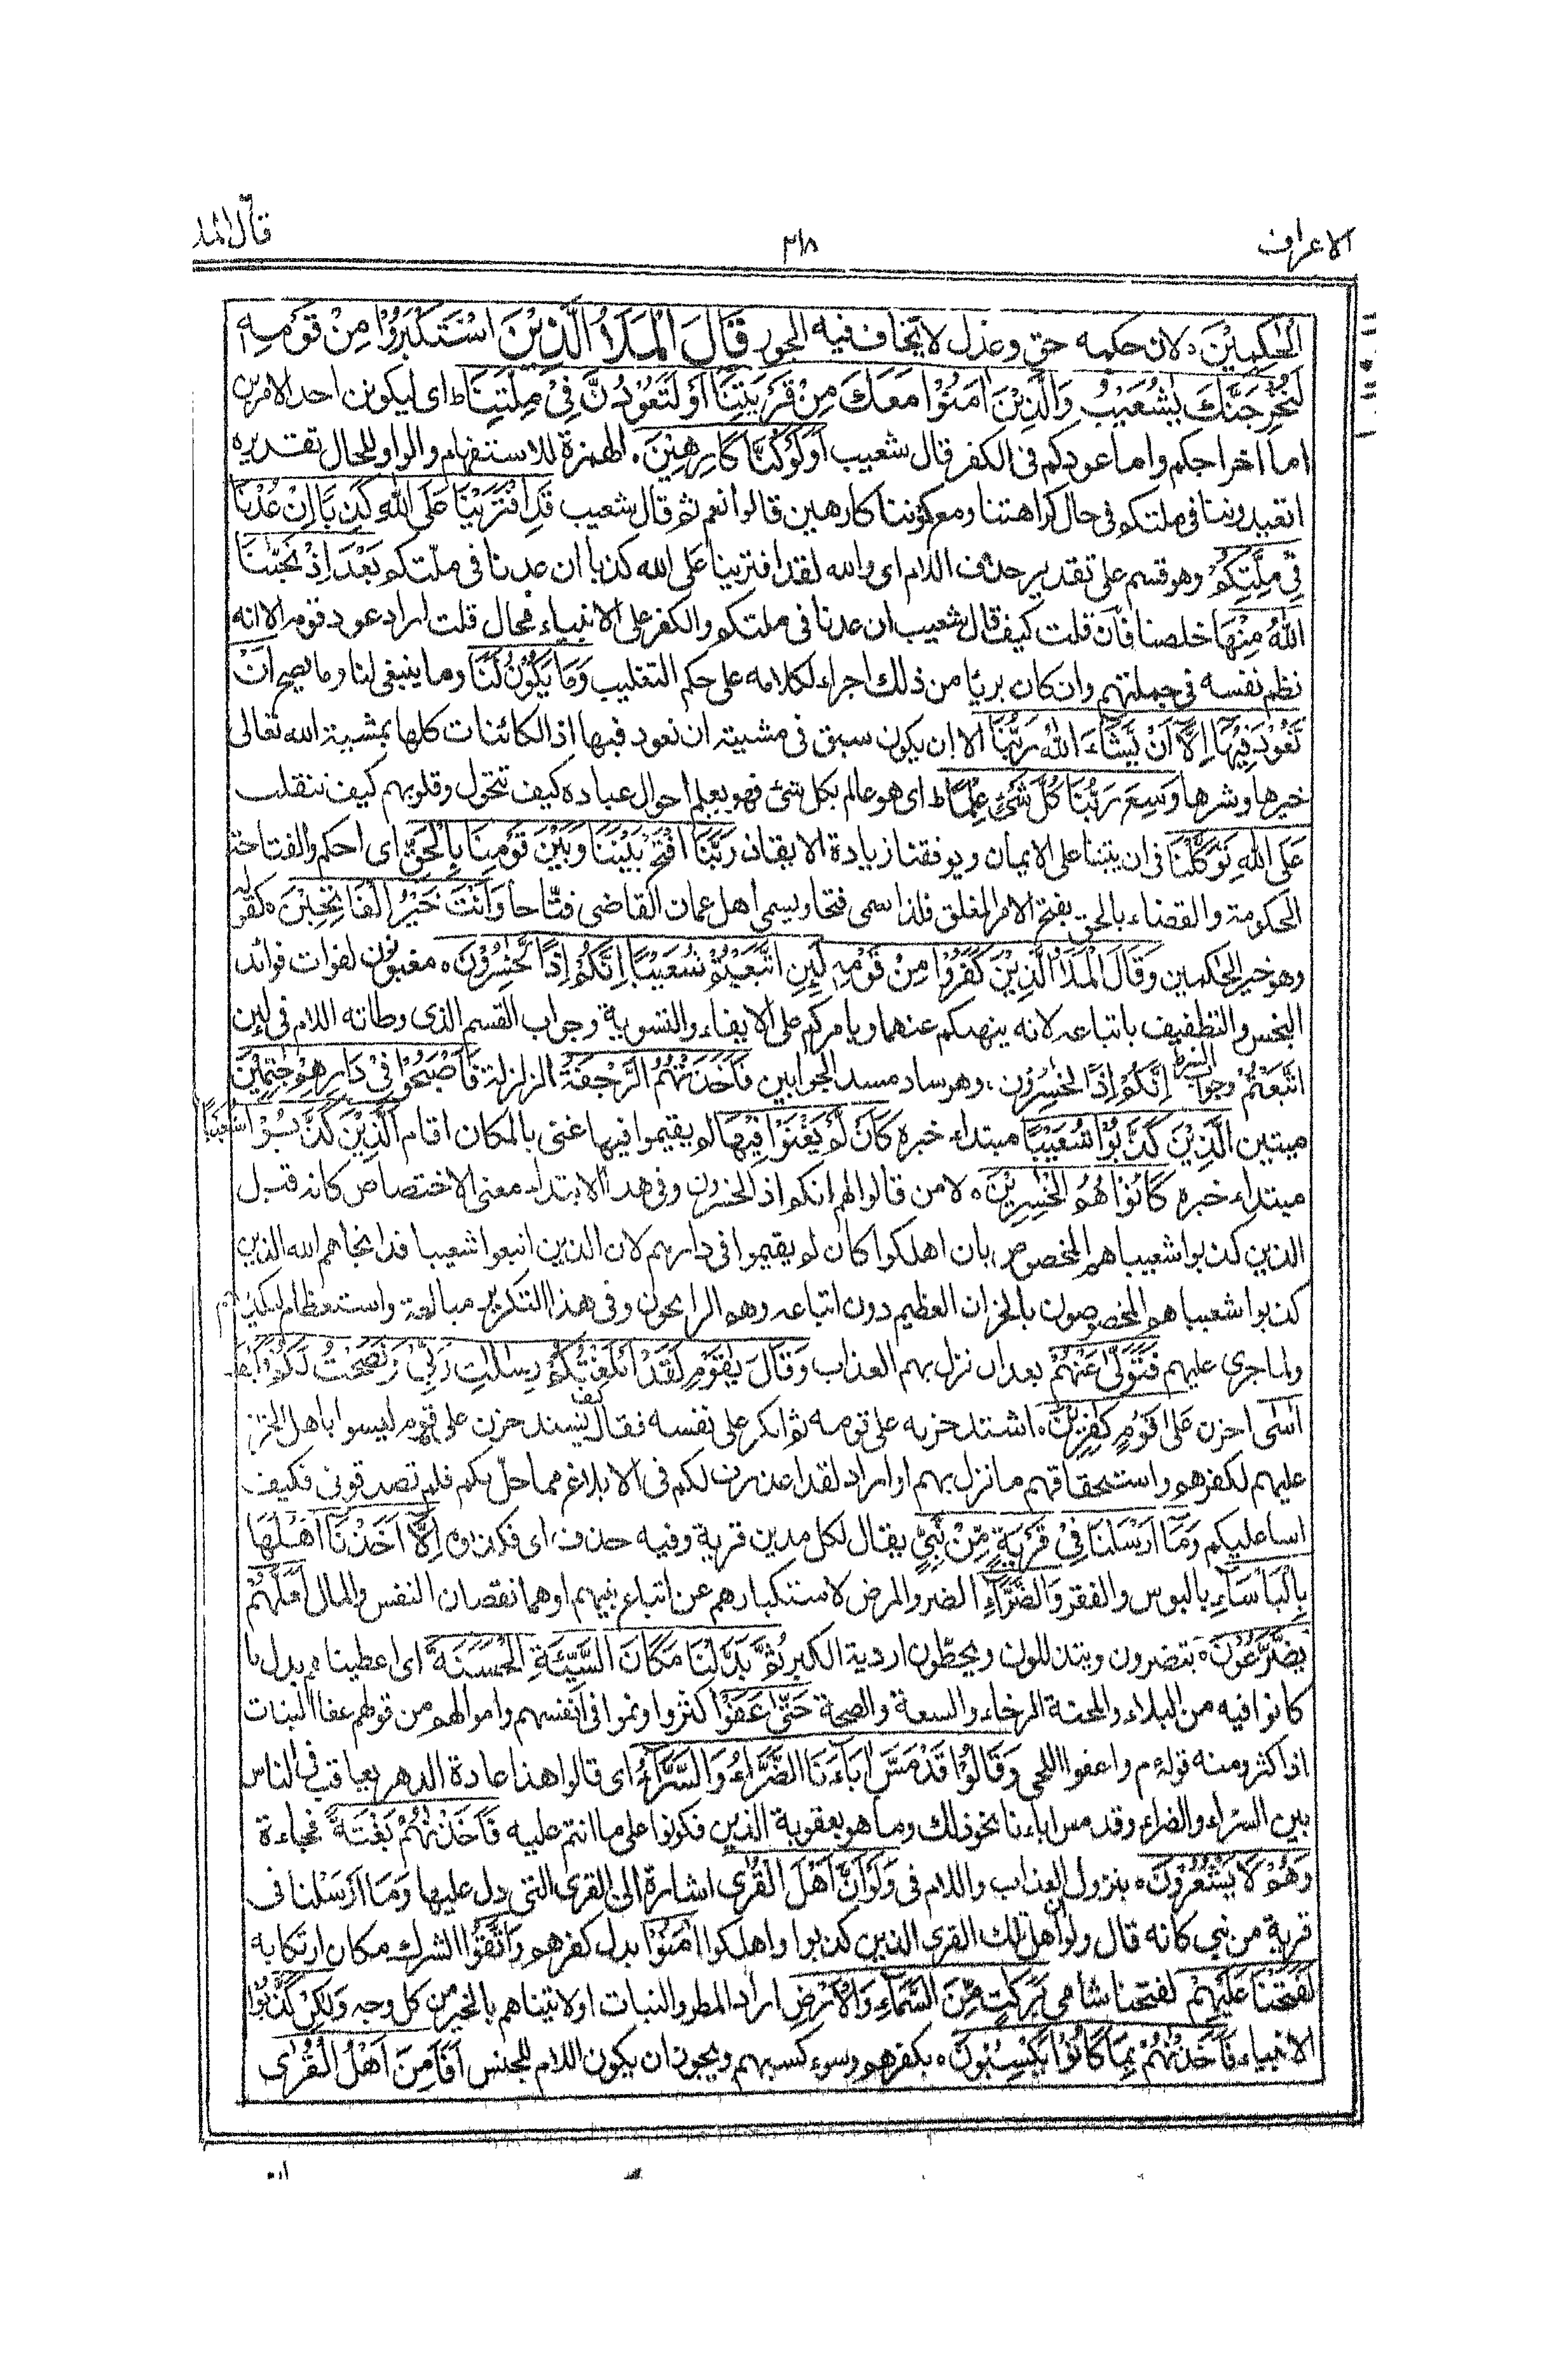 الاعراف
٣١٨
قال الملا
الْحٰكِمِيْنَ ۝ لان حكمه حق وعدل لا يخاف فيه الجور قَالَ الْمَلَاُ الَّذِيْنَ اسْتَكْبَرُوْا مِنْ قَوْمِهٖ
لَنُخْرِجَنَّكَ يٰشُعَيْبُ وَالَّذِيْنَ اٰمَنُوْا مَعَكَ مِنْ قَرْيَتِنَا اَوْ لَتَعُوْدُنَّ فِيْ مِلَّتِنَا ط اى ليكونن احد الامرين
اما اخراجكم واما عودكم فى الكفر قال شعيب اَوَلَوْ كُنَّا كَارِهِيْنَ ۝ الهمزة للاستفهام والواو للحال تقديره
اتعيدوننا فى ملتكم فى حال كراهتنا ومع كوننا كارهين قالوا نعم ثم قال شعيب قَدِ افْتَرَيْنَا عَلَى اللهِ كَذِبًا اِنْ عُدْنَا
فِيْ مِلَّتِكُمْ وهو قسم على تقدير حذف اللام اى والله لقد افترينا على الله كذبا ان عدنا فى ملتكم بَعْدَ اِذْ نَجّٰنَا
اللهُ مِنْهَا خلصنا فان قلت كيف قال شعيب ان عدنا فى ملتكم والكفر على الانبياء محال قلت اراد عود قومه الا انه
نظم نفسه فى جملتهم وان كان بريًا من ذلك اجراء لكلامه على حكم التغليب وَمَا يَكُوْنُ لَنَا وما ينبغى لنا وما يصح اَنْ
نَعُوْدَ فِيْهَا اِلَّا اَنْ يَّشَاءَ اللهُ رَبُّنَا الا ان يكون سبق فى مشيته ان نعود فيها اذ الكائنات كلها بمشية الله تعالى
خيرها وشرها وَسِعَ رَبُّنَا كُلَّ شَيْءٍ عِلْمًا ط اى هو عالم بكل شئ فهو يعلم احوال عباده كيف تتحول وقلوبهم كيف تتقلب
عَلَى اللهِ تَوَكَّلْنَا فى ان يثبتنا على الايمان ويوفقنا زيادة الايقان رَبَّنَا افْتَحْ بَيْنَنَا وَبَيْنَ قَوْمِنَا بِالْحَقِّ اى احكم والفتاحة
الحكومة والقضاء بالحق يفتح الامر المغلق فلذا سمى فتحا ويسمى اهل عمان القاضى فتّاحا وَاَنْتَ خَيْرُ الْفَاتِحِيْنَ ۝ كقوله
وهو خير الحاكمين وَقَالَ الْمَلَاُ الَّذِيْنَ كَفَرُوْا مِنْ قَوْمِهٖ لَئِنِ اتَّبَعْتُمْ شُعَيْبًا اِنَّكُمْ اِذًا لَّخٰسِرُوْنَ ۝ مغبونون لفوات فوائد
البخس والتطفيف باتباعه لانه ينهاكم عنهما ويامركم على الايفاء والتسوية وجواب القسم الذى وطاته اللام فى لئن
اتَّبَعْتُمْ وجواب الشرط اِنَّكُمْ اِذًا لَّخٰسِرُوْن، وهو ساد مسد الجوابين فَاَخَذَتْهُمُ الرَّجْفَةُ الزلزلة فَاَصْبَحُوْا فِيْ دَارِهِمْ جٰثِمِيْنَ
ميتين الَّذِيْنَ كَذَّبُوْا شُعَيْبًا مبتداء خبره كَاَنْ لَّمْ يَغْنَوْا فِيْهَا لم يقيموا فيها غنى بالمكان اقام اَلَّذِيْنَ كَذَّبُوْا شُعَيْبًا
مبتداء خبره كَانُوْا هُمُ الْخٰسِرِيْنَ ۝ لا من قالوا لهم انكم اذ الخسرون وفى هذا الابتداء معنى الاختصاص كانه قيل
الذين كذبوا شعيبا هم المخصوصون بان اهلكوا كان لم يقيموا فى دارهم لان الذين اتبعوا شعيبا قد انجاهم الله الذين
كذبوا شعيبا هم المخصوصون بالخسران العظيم دون اتباعه وهم الرابحون وفى هذا التكرير مبالغة واستعظام لتكذيبهم
ولما جرى عليهم فَتَوَلّٰى عَنْهُمْ بعد ان نزل بهم العذاب وَقَالَ يٰقَوْمِ لَقَدْ اَبْلَغْتُكُمْ رِسٰلٰتِ رَبِّيْ وَنَصَحْتُ لَكُمْ فَكَيْفَ
اٰسٰى احزن عَلٰى قَوْمٍ كٰفِرِيْنَ ۝ اشتد حزنه على قومه ثم انكر على نفسه فقال كيف يشتد حزنى على قوم ليسوا باهل الحزن
عليهم لكفرهم واستحقاقهم ما نزل بهم او اراد لقد اعذرت لكم فى الابلاغ مما حلّ بكم فلم تصدقونى فكيف
اسا عليكم وَمَا اَرْسَلْنَا فِيْ قَرْيَةٍ مِّنْ نَّبِيٍّ يقال لكل مدين قرية وفيه حذف اى فكذبوه اِلَّا اَخَذْنَا اَهْلَهَا
بِالْبَاْسَاءِ بالبوس والفقر وَالضَّرَّاءِ الضر والمرض لاستكبارهم عن اتباع نبيهم او هما نقصان النفس والمال لَعَلَّهُمْ
يَضَّرَّعُوْنَ ۝ يتضرعون ويتذللون ويحطّون اردية الكبر ثُمَّ بَدَّلْنَا مَكَانَ السَّيِّئَةِ الْحَسَنَةَ اى اعطيناهم بدل ما
كانوا فيه من البلاء والمحنة الرخاء والسعة والصحة حَتّٰى عَفَوْا كثروا ونموا فى انفسهم واموالهم من قولهم عفا النبات
اذا كثر ومنه قوله م واعفوا اللحى وَقَالُوْا قَدْ مَسَّ اٰبَاءَنَا الضَّرَّاءُ وَالسَّرَّاءُ اى قالوا هذا عادة الدهر يعاقب فى الناس
بين السّراء والضراء وقد مس اباءنا نحو ذلك وما هو بعقوبة الذين فكونوا على ما انتم عليه فَاَخَذْنٰهُمْ بَغْتَةً فجاءة
وَهُمْ لَا يَشْعُرُوْنَ ۝ بنزول العذاب واللام فى وَلَوْ اَنَّ اَهْلَ الْقُرٰى اشارة الى القرى التى دل عليها وَمَا اَرْسَلْنَا فى
قرية من نبى كانه قال ولو ان اهل تلك القرى الذين كذبوا واهلكوا اٰمَنُوْا بدل كفرهم وَاتَّقَوْا الشرك مكان ارتكابه
لَفَتَحْنَا عَلَيْهِمْ لفتحنا شامى بَرَكٰتٍ مِّنَ السَّمَاءِ وَالْاَرْضِ اراد المطر والنبات او لاتيناهم بالخير من كل وجه وَلٰكِنْ كَذَّبُوْا
الانبياء فَاَخَذْنٰهُمْ بِمَا كَانُوْا يَكْسِبُوْنَ ۝ بكفرهم وسوء كسبهم ويجوز ان يكون اللام للجنس اَفَاَمِنَ اَهْلُ الْقُرٰى